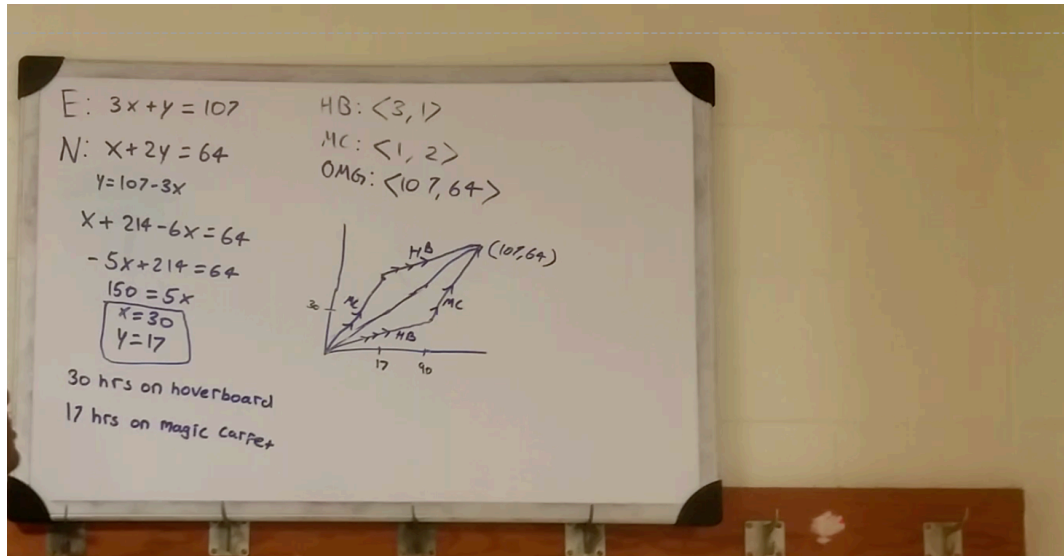 E: 3x+y=107
N: x+2y=64
y=107-3x
x+214-6x=64
-5x+214=64
150=5x
x=30
y=17
30 hrs on hoverboard
17 hrs on magic carpet
HB: <3,1>
MC: <1,2>
OMG: <107,64>
HB
(107,64)
MC
30
MC
HB
17
90